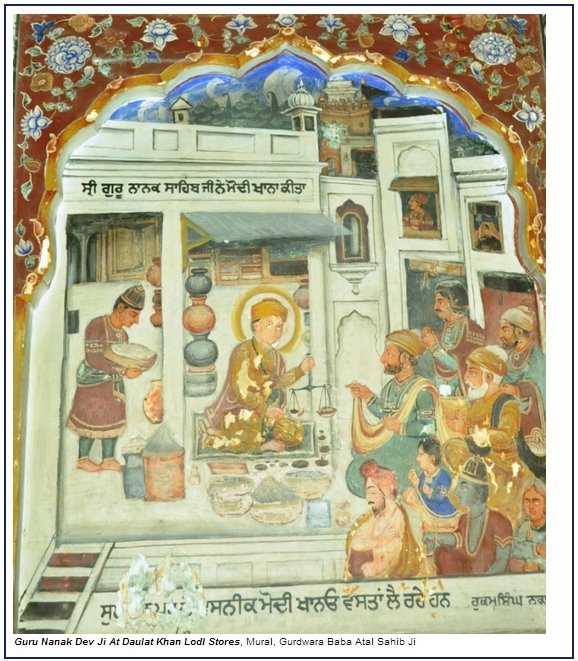 ਸ੍ਰੀ ਗੁਰੂ ਨਾਨਕ ਸਾਹਿਬ ਜੀਨੇ ਮੌਦੀ ਖਾਨਾ ਕੀਤਾ
ਮੋਦੀ ਖਾਨਓ ਵਸਤਾਂ ਲੈ ਰਹੇ ਹਨ ਹੁਕਮਸਿੰਘ
Guru Nanak Dev Ji At Daulat Khan Lodi Stores, Mural, Gurdwara Baba Atal Sahib Ji